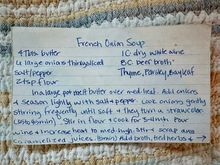 French Onion Soup
4 Tbls butter 1 C dry white wine
4 large onions thinly sliced 8 C beef broth
Salt/pepper Thyme, Parsley, Bayleaf
2 tsp flour
In a large pot melt butter over med heat. Add onions
& season lightly with salt & pepper. Cook onions gently
stirring frequently until soft & they turn a
Stir in flour & cook for 5 min. Pour
wine & increase heat to med-high. Stir & scrap
caramelized juices. Add broth, herbs &